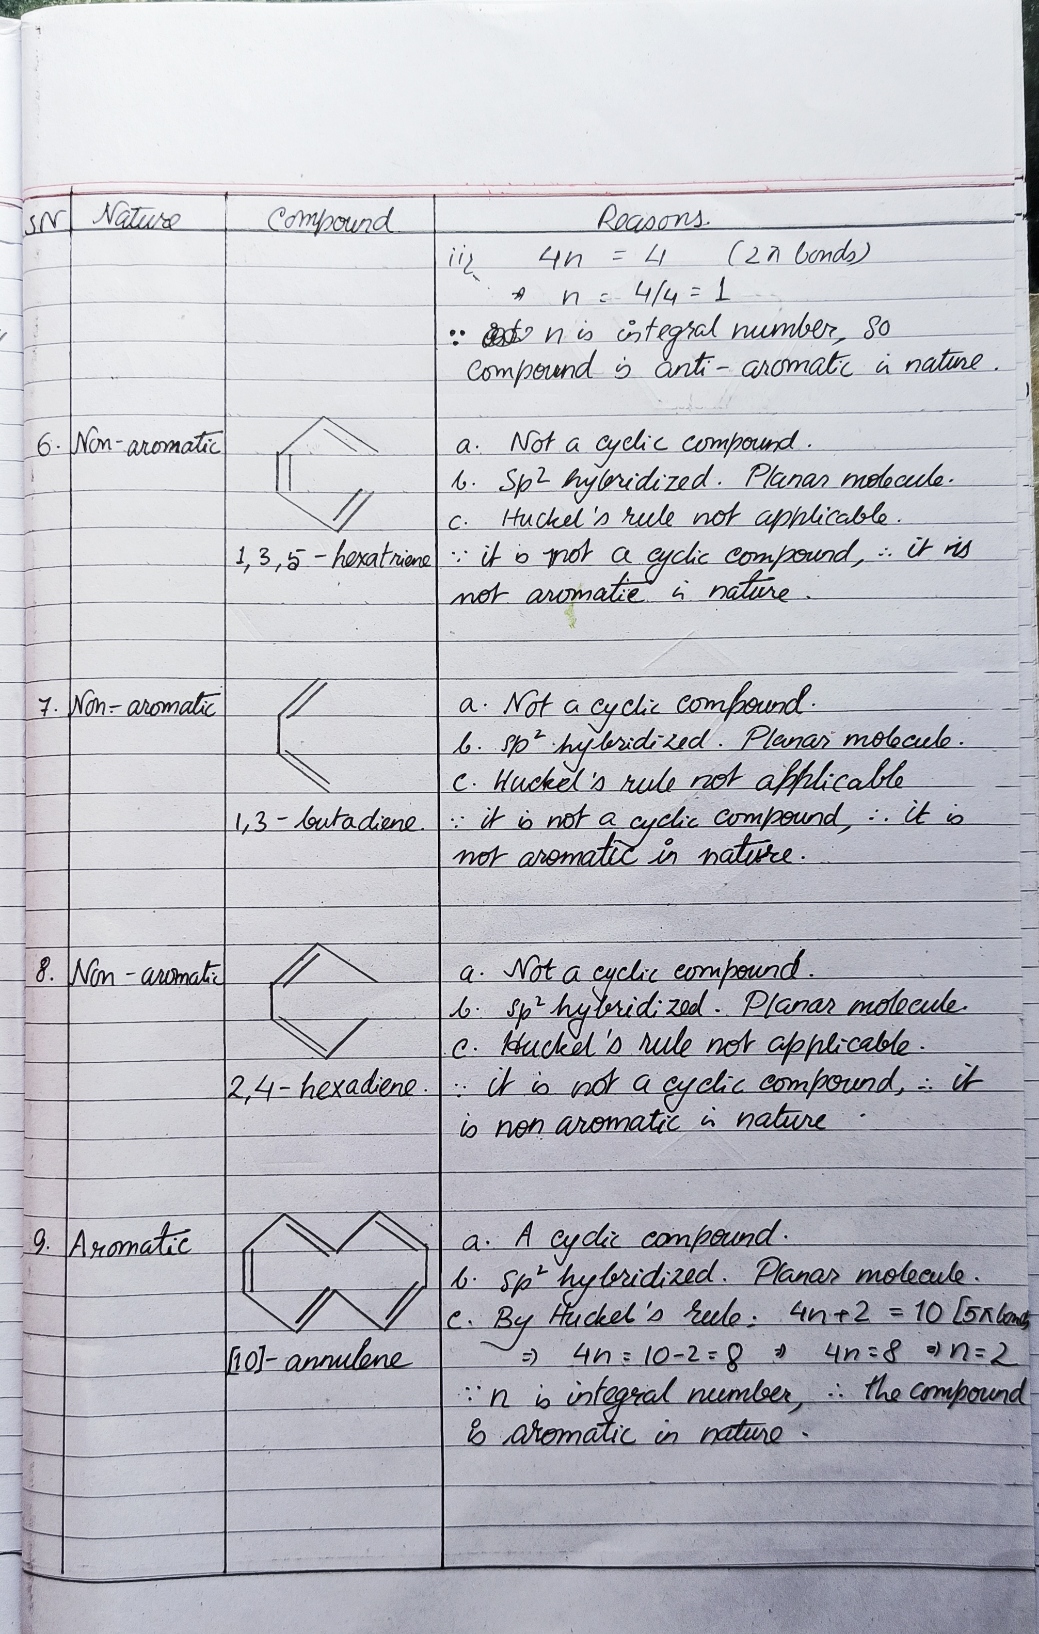 S.N Nature Compound Reasons.
ii, 4n = 4 (2π bonds)
⇒ n = 4/4 = 1
∵ n is integral number, so
compound is anti-aromatic in nature.
6. Non-aromatic a. Not a cyclic compound.
b. Sp² hybridized. Planar molecule.
c. Huckel's rule not applicable.
1,3,5-hexatriene ∵ it is not a cyclic compound, ∴ it is
not aromatic in nature.
7. Non-aromatic a. Not a cyclic compound.
b. sp² hybridized. Planar molecule.
c. Huckel's rule not applicable
1,3-butadiene. ∵ it is not a cyclic compound, ∴ it is
not aromatic in nature.
8. Non-aromatic a. Not a cyclic compound.
b. sp² hybridized. Planar molecule.
c. Huckel's rule not applicable.
2,4-hexadiene. ∵ it is not a cyclic compound, ∴ it
is non aromatic in nature
9. Aromatic a. A cyclic compound.
b. sp² hybridized. Planar molecule.
c. By Huckel's rule: 4n+2 = 10 [5π bonds
[10]-annulene ⇒ 4n = 10-2 = 8 ⇒ 4n = 8 ⇒ n = 2
∵ n is integral number, ∴ the compound
is aromatic in nature.